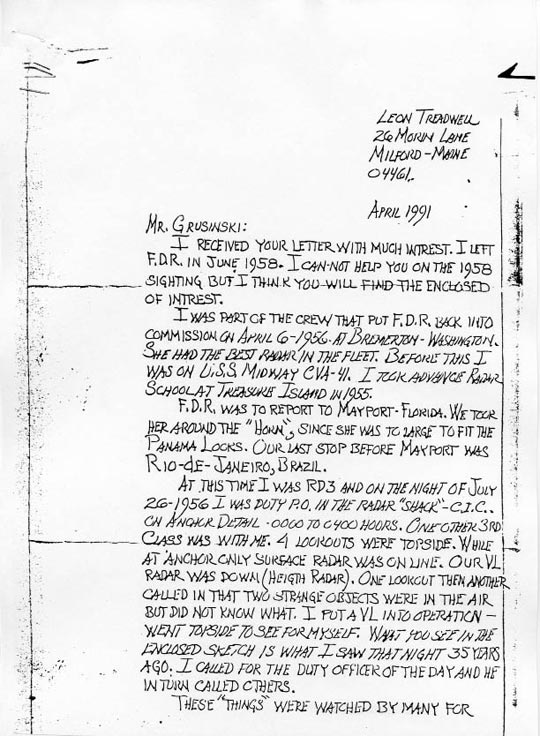 LEON TREADWELL
26 MORIN LANE
MILFORD - MAINE
04461.
APRIL 1991
MR. GRUSINSKI:
I RECEIVED YOUR LETTER WITH MUCH INTREST. I LEFT
F.D.R. IN JUNE 1958. I CAN-NOT HELP YOU ON THE 1958
SIGHTING BUT I THINK YOU WILL FIND THE ENCLOSED
OF INTREST.
I WAS PART OF THE CREW THAT PUT F.D.R. BACK INTO
COMMISSION ON APRIL 6-1956. AT BREMERTON - WASHINGTON.
SHE HAD THE BEST RADAR IN THE FLEET. BEFORE THIS I
WAS ON U.S.S MIDWAY CVA-41. I TOOK ADVANCE RADAR
SCHOOL AT TREASURE ISLAND IN 1955.
F.D.R. WAS TO REPORT TO MAYPORT-FLORIDA. WE TOOK
HER AROUND THE "HORN", SINCE SHE WAS TO LARGE TO FIT THE
PANAMA LOCKS. OUR LAST STOP BEFORE MAYPORT WAS
RIO-DE-JANEIRO, BRAZIL.
AT THIS TIME I WAS RD3 AND ON THE NIGHT OF JULY
26-1956 I WAS DUTY P.O. IN THE RADAR "SHACK"-C.I.C.
ON ANCHOR DETAIL - 0000 TO 0400 HOURS. ONE OTHER 3RD
CLASS WAS WITH ME. 4 LOOKOUTS WERE TOPSIDE. WHILE
AT ANCHOR ONLY SURFACE RADAR WAS ON LINE. OUR VL
RADAR WAS DOWN (HEIGTH RADAR). ONE LOOKOUT THEN ANOTHER
CALLED IN THAT TWO STRANGE OBJECTS WERE IN THE AIR
BUT DID NOT KNOW WHAT. I PUT A VL INTO OPERATION -
WENT TOPSIDE TO SEE FOR MYSELF. WHAT YOU SEE IN THE
ENCLOSED SKETCH IS WHAT I SAW THAT NIGHT 35 YEARS
AGO. I CALLED FOR THE DUTY OFFICER OF THE DAY AND HE
IN TURN CALLED OTHERS.
THESE "THINGS" WERE WATCHED BY MANY FOR